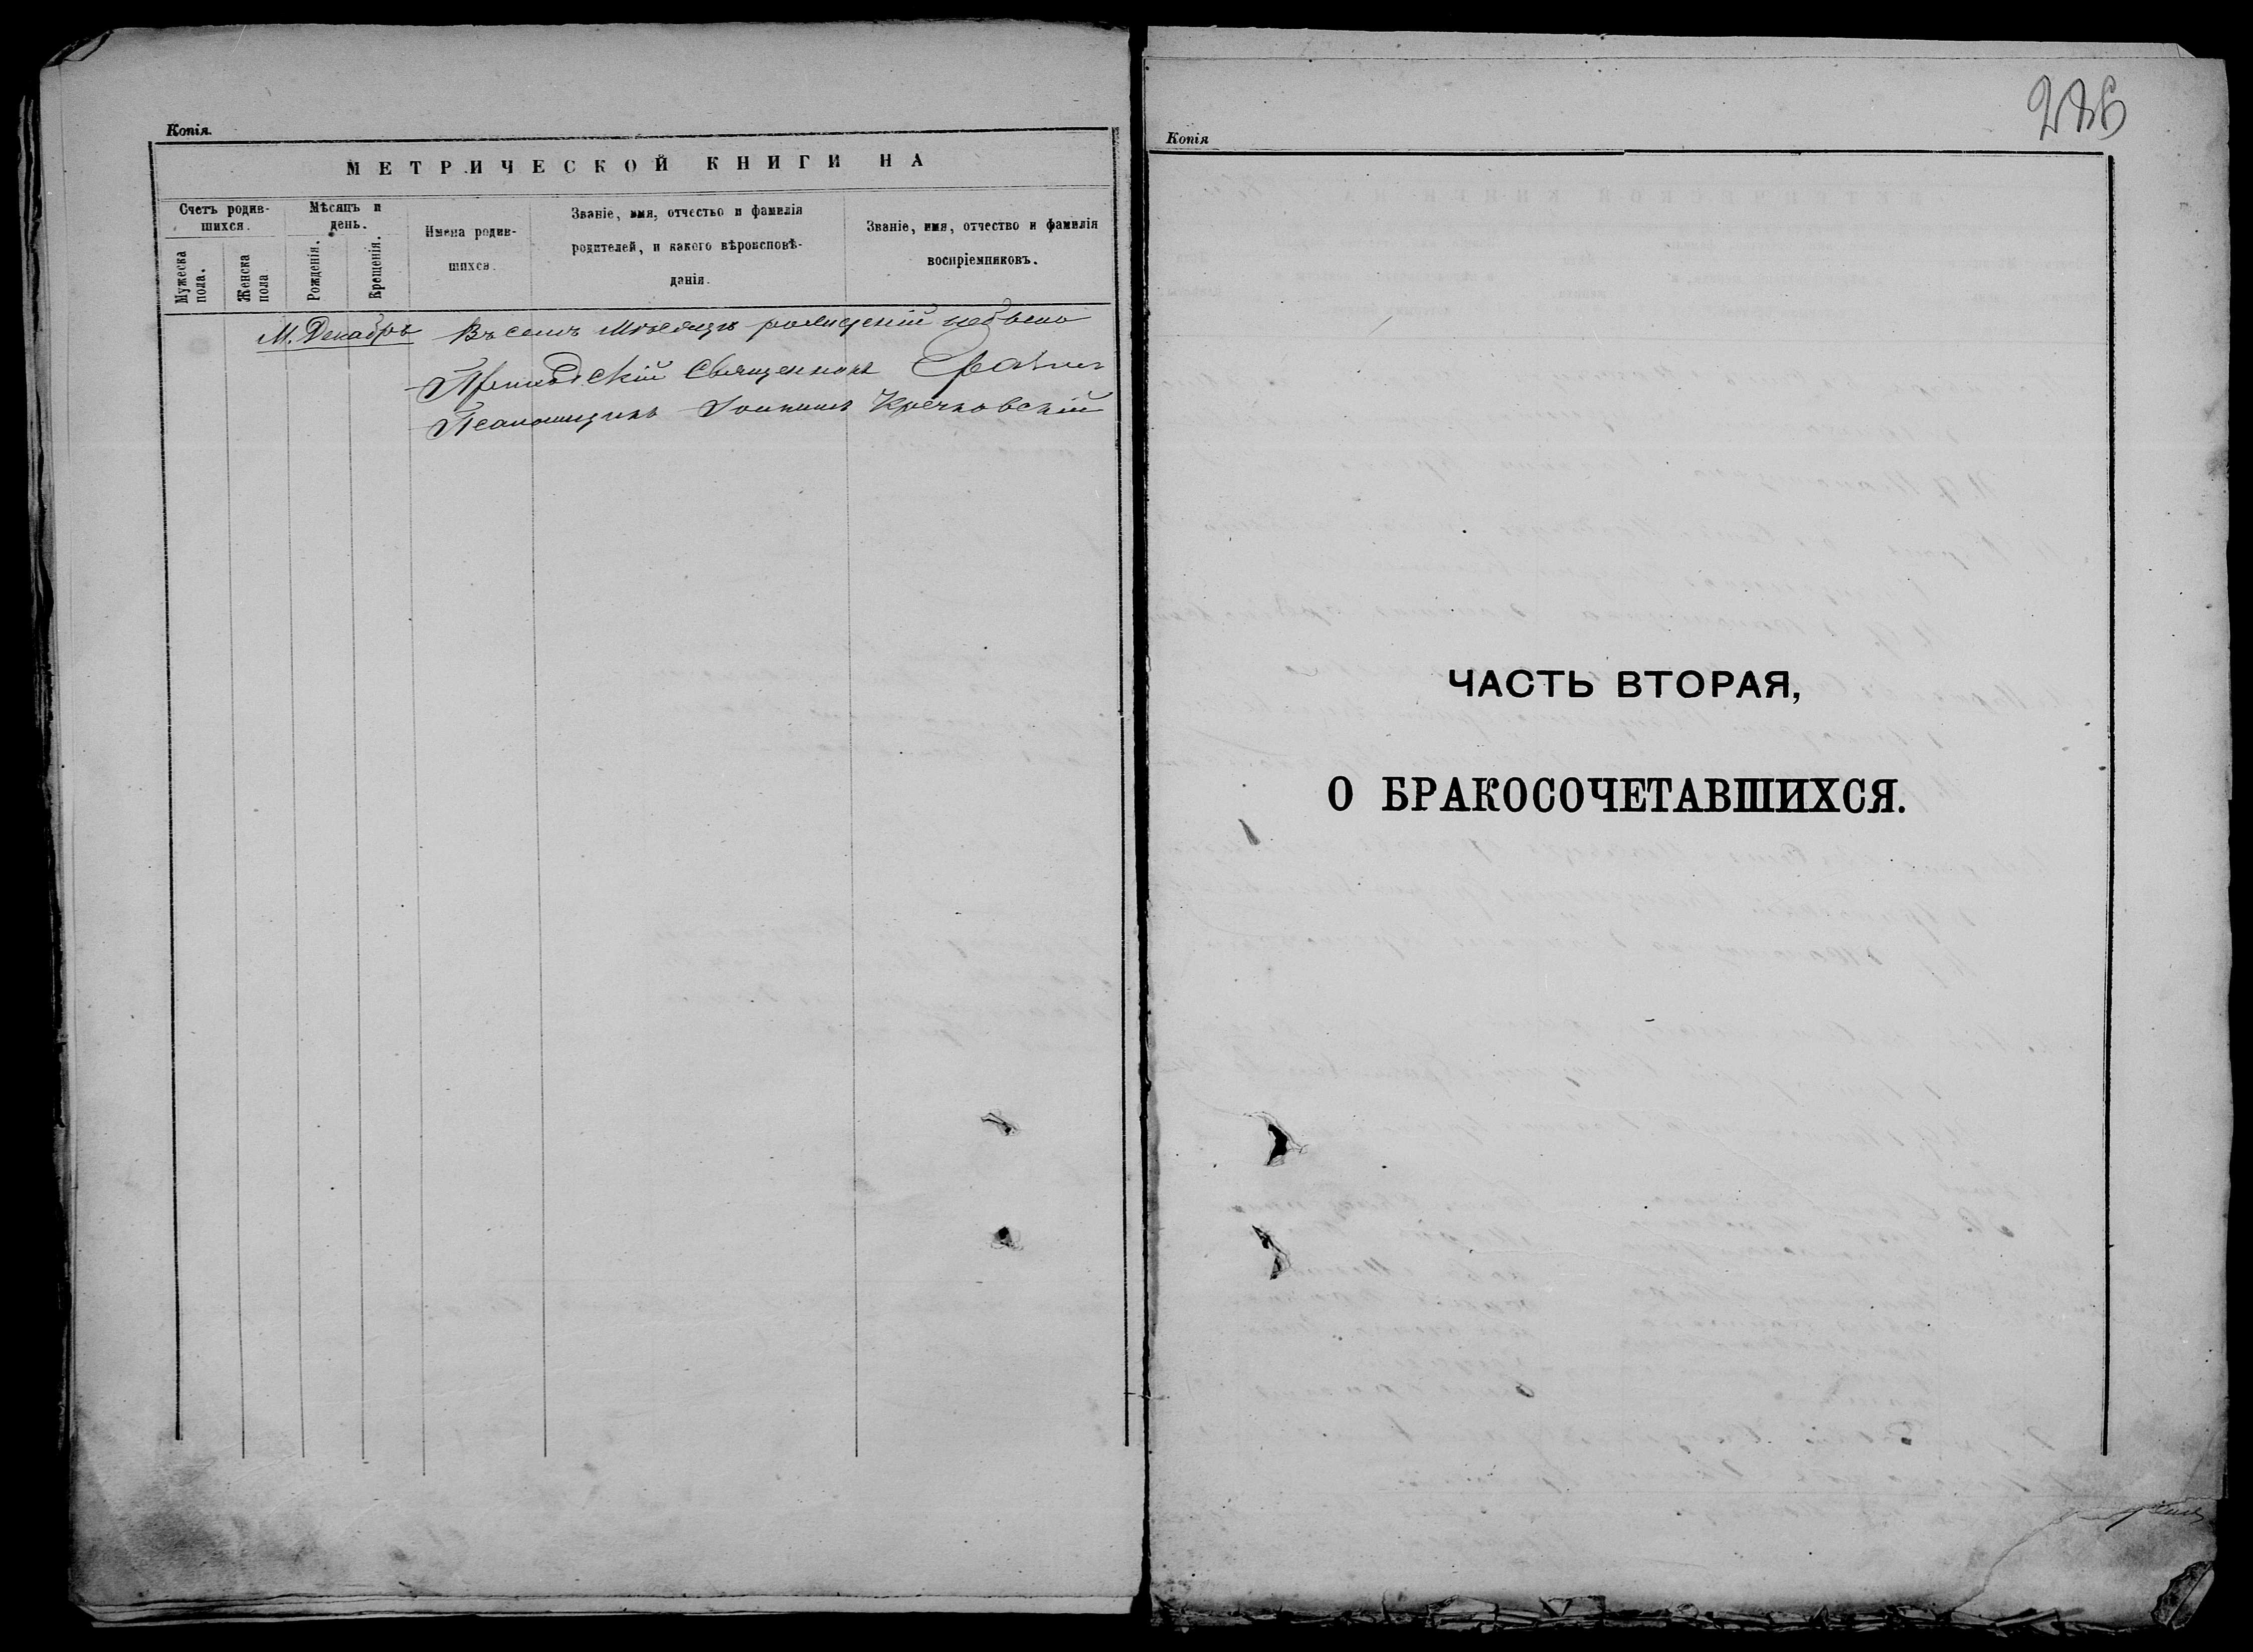 Копія.
МЕТРИЧЕСКОЙ КНИГИ НА
Счетъ родив-
шихся.
Мужеска
пола.
Женска
пола
Мѣсяцъ и
день.
Рожденія.
Крещенія.
Имена родив-
шихся.
Званіе, имя, отчество и фамилія
родителей, и какого вѣроисповѣ-
данія.
Званіе, имя, отчество и фамилія
воспріемниковъ.
М. Декабрь Въ семъ Мѣсяцѣ рожденій небыло
Приходскій Священникъ
Псаломщикъ Іоаннъ Кречковскій
Копія
ЧАСТЬ ВТОРАЯ,
О БРАКОСОЧЕТАВШИХСЯ.